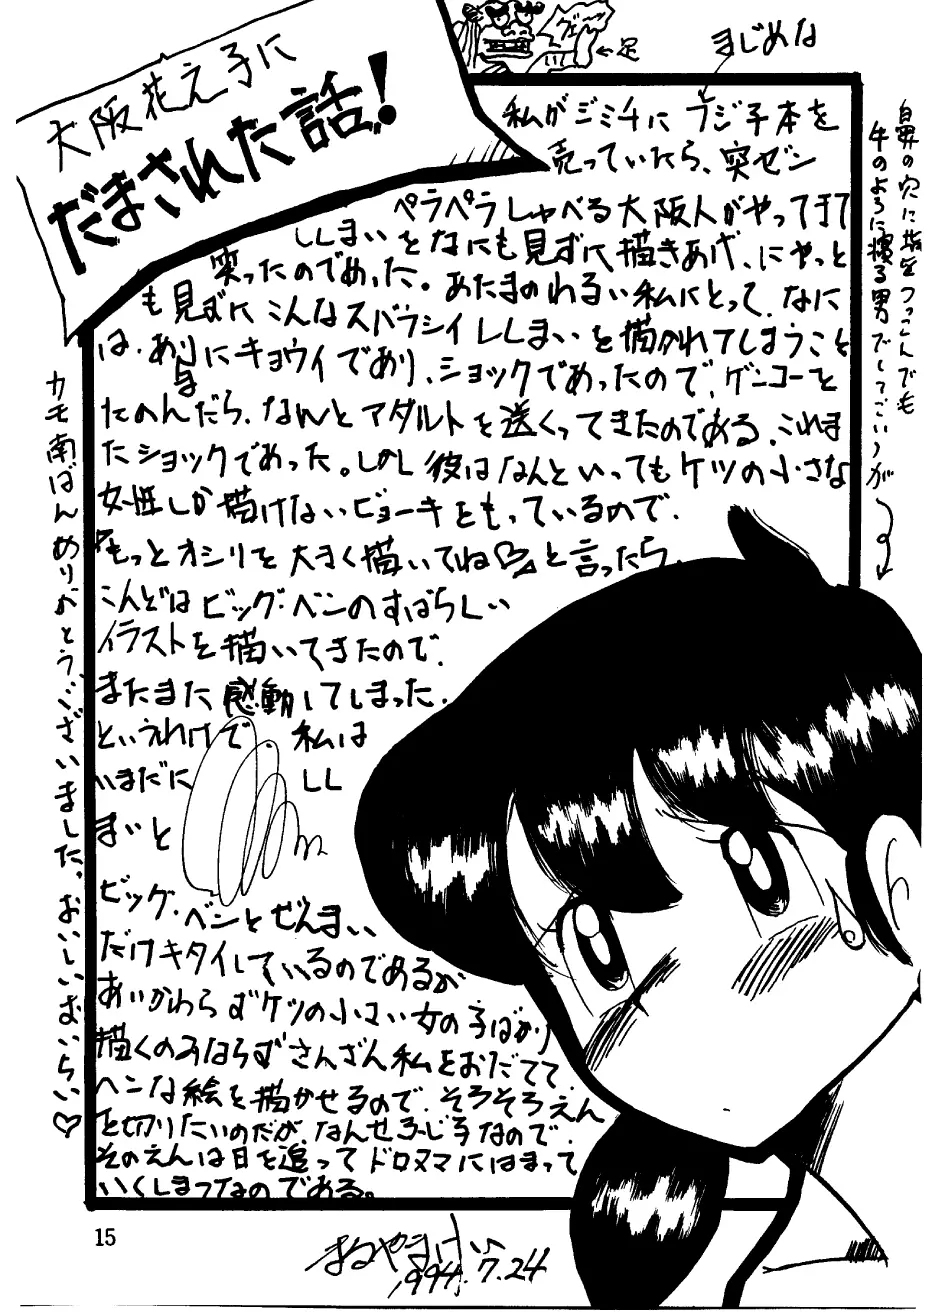 大阪花え子に
だまされた話!
ヴェ〜
←足
まじめな
私がジミチにフジ子本を
売っていたら、突ゼン
ペラペラしゃべる大阪人がやってきて
ししまいをなにも見ずに描きあげ、にやっと
笑ったのであった。あたまのわるい私にとって、なに
も見ずにこんなスバラシイししまいを描かれてしまうこと
は、あまりにキョウイであり、ショックであったので、ゲンコーを
たのんだら、なんとアダルトを送くってきたのである、これま
たショックであった。しかし彼はなんといってもケツの小さな
女性しか描けないビョーキをもっているので、
『もっとオシリを大きく描いてね♡』と言ったら、
こんどはビッグ・ベンのすばらしい
イラストを描いてきたので、
またまた感動してしまった。
というわけで、私は
いまだにしし
まいと
ビッグ・ベンとぜんまい
だけキタイしているのであるが
あいかわらずケツの小さい女の子ばかり
描くのみならずさんざん私をおだてて、
ヘンな絵を描かせるので、そろそろえん
を切りたいのだが、なんせふじ子なので、
そのえんは日を追ってドロヌマにはまって
いくしまつなのである。
鼻の穴に指をつっこんでも
牛のように寝る男でしてございうが
カモ南ばんありがとうございました。おいしいおいらい♡
まるやまけい
1994.7.24
15